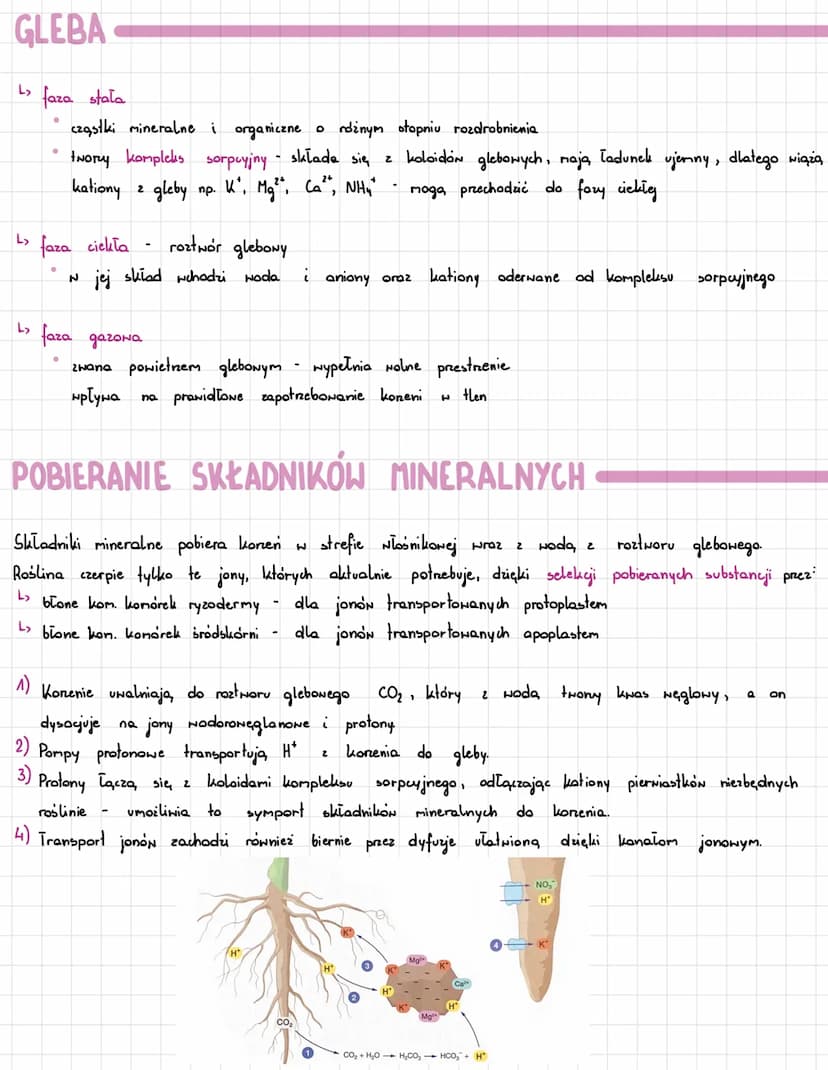 GLEBA
↳ faza stała
• cząstki mineralne i organiczne o różnym stopniu rozdrobnienia
• tworzy kompleks sorpcyjny - składa się z koloidów glebowych, mają ładunek ujemny, dlatego wiążą
kationy z gleby np. K⁺, Mg²⁺, Ca²⁺, NH₄⁺ - mogą przechodzić do fazy ciekłej
↳ faza ciekła - roztwór glebowy
• w jej skład wchodzi woda i aniony oraz kationy oderwane od kompleksu sorpcyjnego
↳ faza gazowa
• zwana powietrzem glebowym - wypełnia wolne przestrzenie
wpływa na prawidłowe zapotrzebowanie korzeni w tlen
POBIERANIE SKŁADNIKÓW MINERALNYCH
Składniki mineralne pobiera korzeń w strefie włośnikowej wraz z wodą z roztworu glebowego.
Roślina czerpie tylko te jony, których aktualnie potrzebuje, dzięki selekcji pobieranych substancji przez:
↳ błonę kom. komórek ryzodermy - dla jonów transportowanych protoplastem
↳ błonę kom. komórek śródskórni - dla jonów transportowanych apoplastem
1) Korzenie uwalniają do roztworu glebowego CO₂, który z wodą tworzy kwas węglowy, a on
dysocjuje na jony wodorowęglanowe i protony
2) Pompy protonowe transportują H⁺ z korzenia do gleby.
3) Protony łączą się z koloidami kompleksu sorpcyjnego, odłączając kationy pierwiastków niezbędnych
roślinie - umożliwia to symport składników mineralnych do korzenia.
4) Transport jonów zachodzi również biernie przez dyfuzję ułatwioną dzięki kanałom jonowym.
NO₃⁻
H⁺
K⁺
4
K⁺
H⁺
H⁺
3
K⁺
Mg²⁺
K⁺
Ca²⁺
H⁺
2
K⁺
H⁺
Mg²⁺
CO₂
1
CO₂ + H₂O → H₂CO₃ → HCO₃⁻ + H⁺